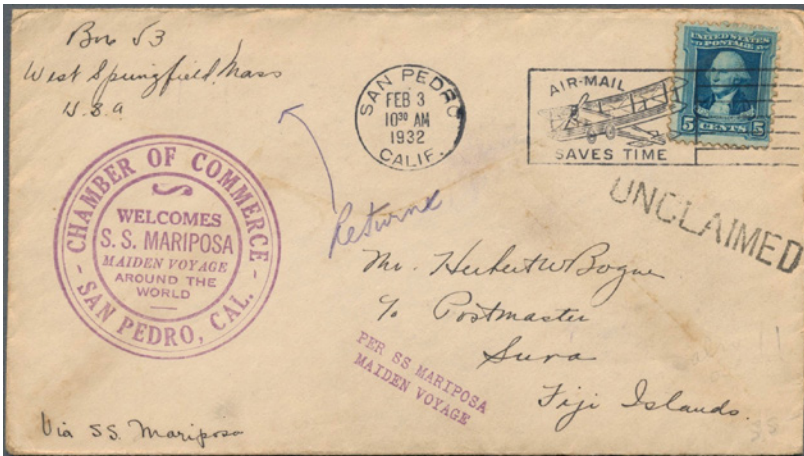 Box 53
West Springfield, Mass
U.S.A
SAN PEDRO
FEB 3
10³⁰ AM
1932
CALIF.
AIR-MAIL
SAVES TIME
UNITED STATES
POSTAGE
5 CENTS 5
CHAMBER OF COMMERCE
WELCOMES
S. S. MARIPOSA
MAIDEN VOYAGE
AROUND THE
WORLD
SAN PEDRO, CAL.
UNCLAIMED
Mr. Herbert W Bogue
c/o Postmaster
Suva
Fiji Islands.
PER SS MARIPOSA
MAIDEN VOYAGE
Via SS. Mariposa